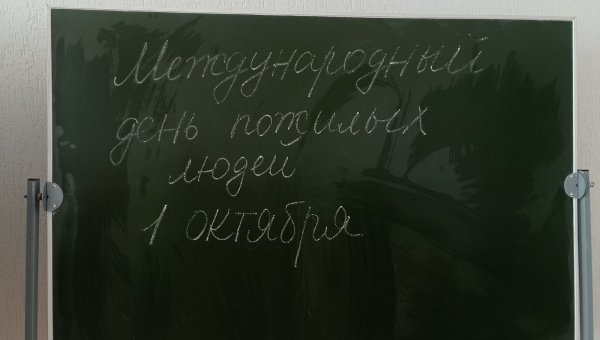 Международный
день пожилых
людей
1 октября